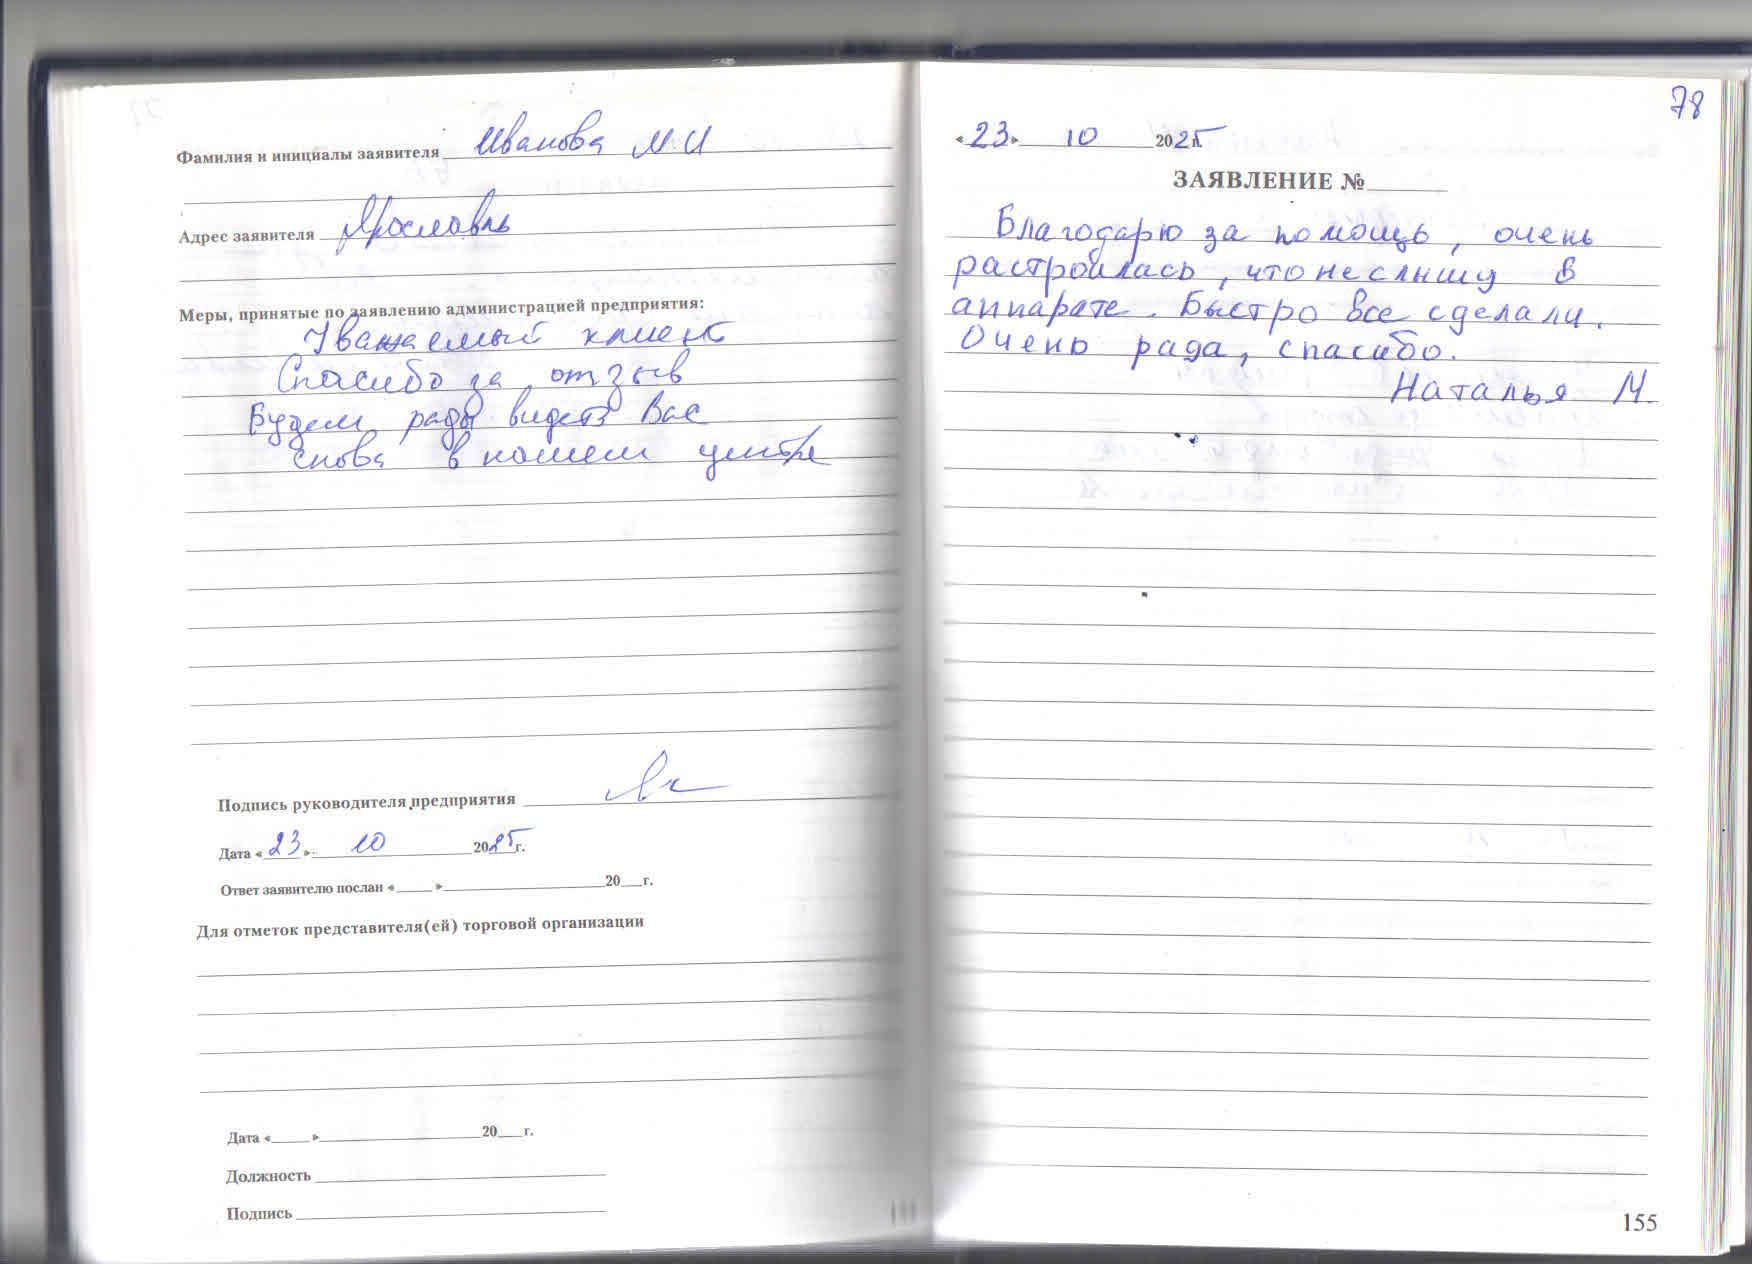 Фамилия и инициалы заявителя Иванова М И
Адрес заявителя Ярославль
Меры, принятые по заявлению администрацией предприятия:
Уважаемый клиент
Спасибо за отзыв
Будем рады видеть Вас
снова в нашем центре
Подпись руководителя предприятия
Дата «23» 10 2025г.
Ответ заявителю послан «____» ____ 20__г.
Для отметок представителя(ей) торговой организации
Дата «____» ____ 20__г.
Должность
Подпись
78
«23» 10 2025г.
ЗАЯВЛЕНИЕ №
Благодарю за помощь, очень
растроилась, что не слышу в
аппарате. Быстро все сделали.
Очень рада, спасибо.
Наталья М.
155